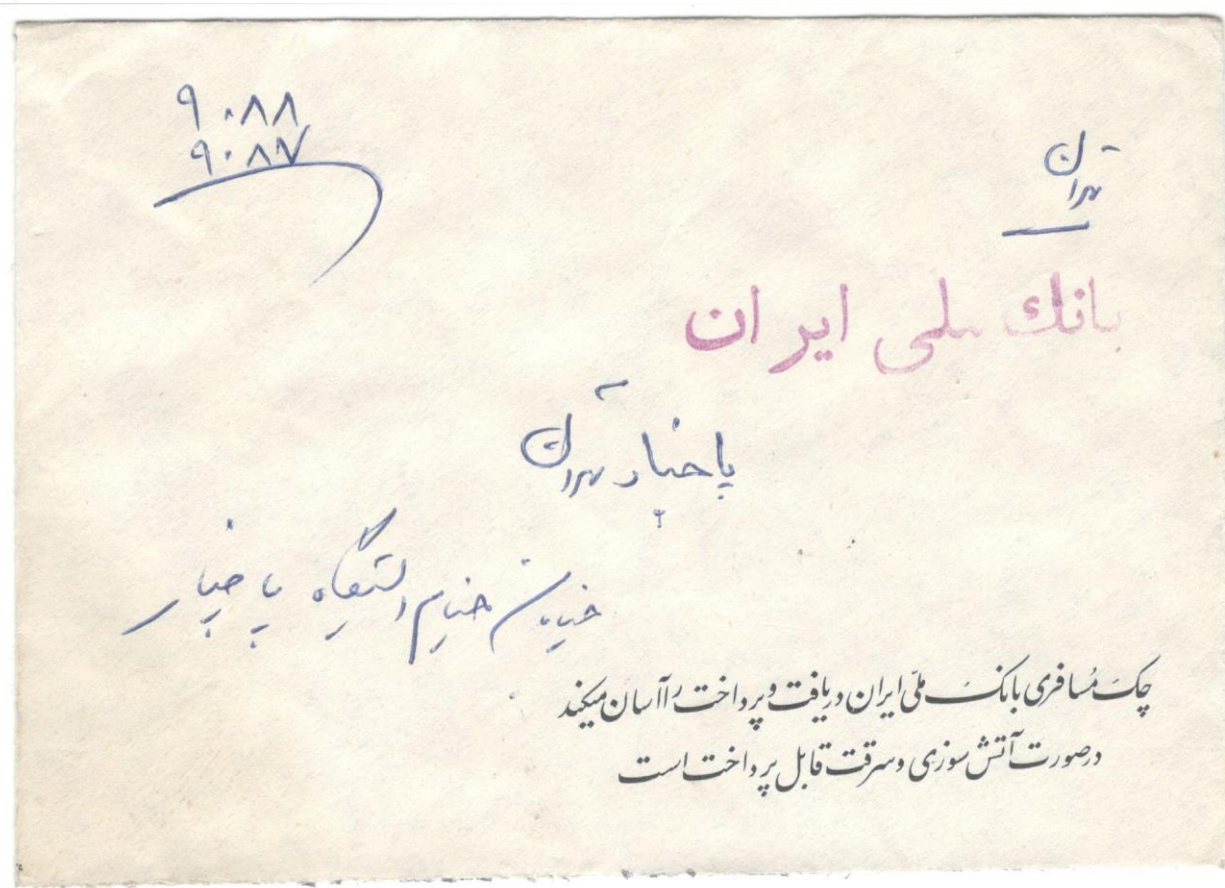 ۹۰۸۸
۹۰۸۷
تهران
بانك ملی ایران
پاچنار تهران
خیابان خیام ایستگاه پاچنار
چک مُسافری بانک ملّی ایران دریافت و پرداخت را آسان میکند
درصورت آتش سوزی وسرقت قابل پرداخت است